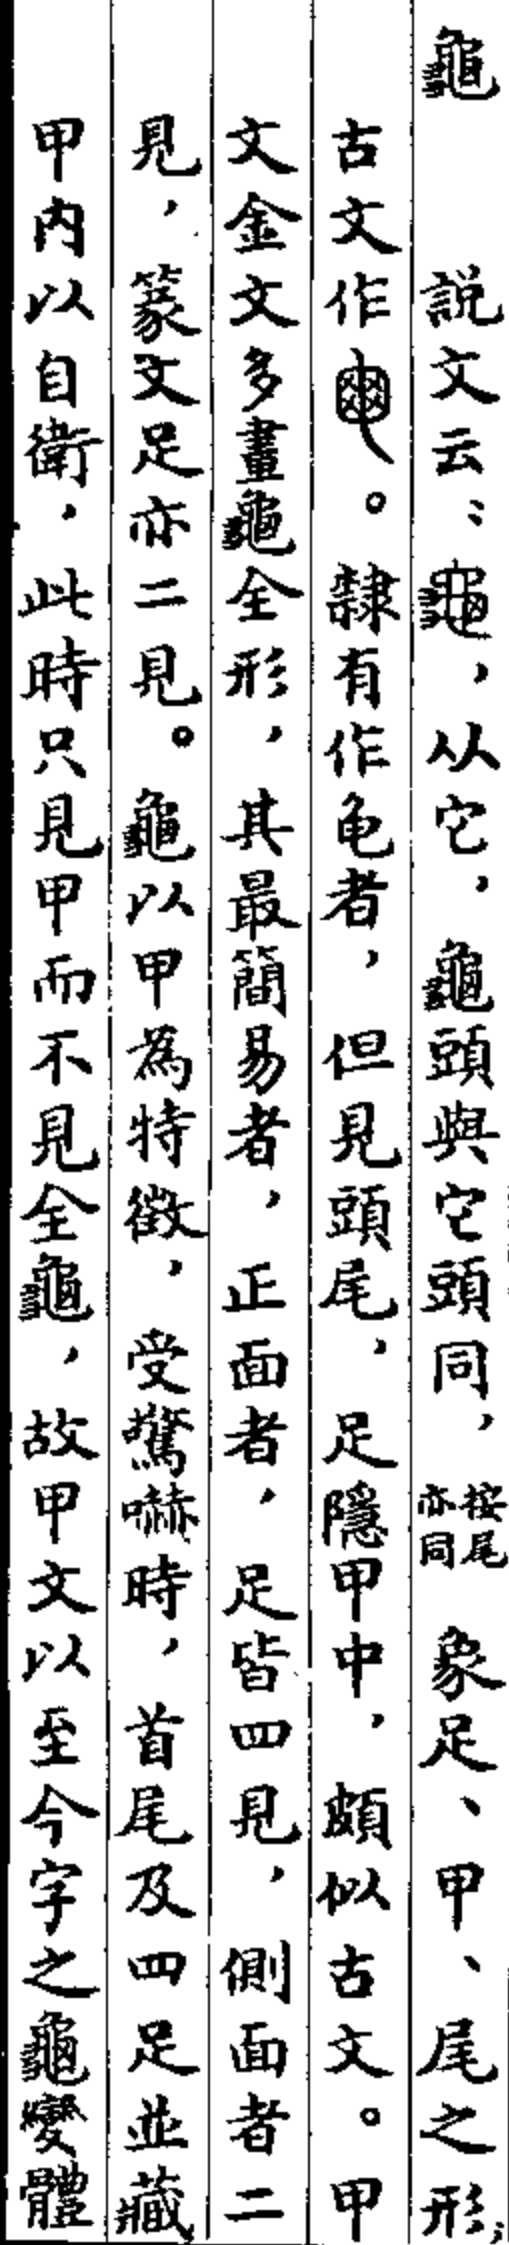 龜　說文云：龜，从它，龜頭與它頭同，按尾亦同象足、甲、尾之形；
古文作。隸有作龟者，但見頭尾，足隱甲中，頗似古文。甲
文金文多畫龜全形，其最簡易者，正面者，足皆四見，側面者二
見，篆文足亦二見。龜以甲為特徵，受驚嚇時，首尾及四足並藏
甲內以自衛，此時只見甲而不見全龜，故甲文以至今字之龜變體